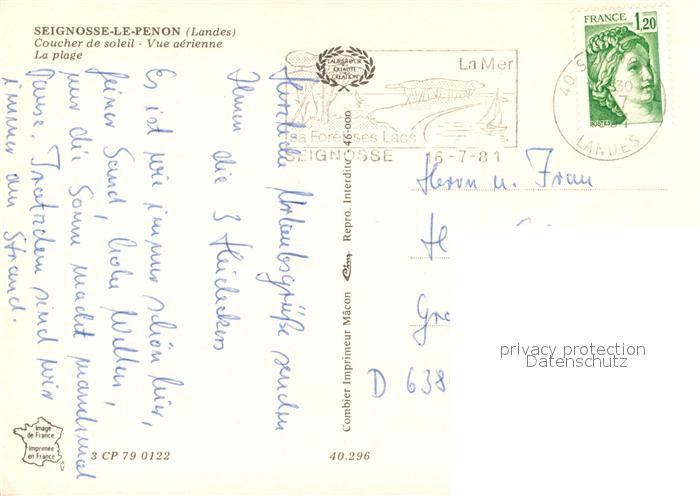 SEIGNOSSE-LE-PENON (Landes)
Coucher de soleil - Vue aérienne
La plage
LAURIER D'OR
QUALITÉ
CRÉATION
La Mer
Sa Forêt ses Lacs
SEIGNOSSE 16-7-81
FRANCE
1,20
POSTES
40 S
30
7
LANDES
Herzliche Urlaubsgrüße senden
Ihnen die 3 Heideckers
Es ist wie immer schön hier,
feiner Sand, hohe Wellen,
nur die Sonne macht manchmal
Pause. Trotzdem sind wir
immer am Strand.
Combier Imprimeur Mâcon
Cim
Repro. Interdite 46-000
Herrn u. Frau
H
Gra
D 638
privacy protection
Datenschutz
Image
de France
Imprimée
en France
3 CP 79 0122
40.296